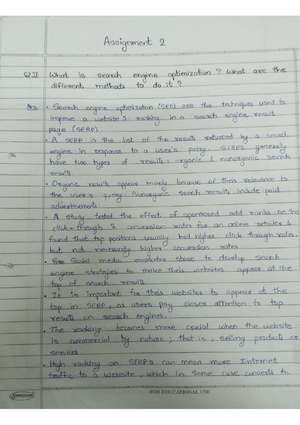 Assignment 2
Q.1] What is search engine optimization? What are the
different methods to do it?
Ans • Search engine optimization (SEO) are the techniques used to
improve a website's ranking in a search engine result
page (SERP).
• A SERP is the list of the results returned by a search
engine in response to a user's query. SERPs generally
have two types of results: organic & nonorganic search
result.
• Organic results appear merely because of their relevance to
the user's query. Nonorganic search results include paid
advertisements.
• A study tested the effect of sponsored add ranks on the
click-through & conversion rates for an online retailer &
found that top positions usually had higher click through rates,
but not necessarily higher conversion rates.
• Social media marketers strive to develop search
engine strategies to make their websites appear at the
top of search result.
• It is important for their websites to appear at the
top in SERP, as users pay closer attention to top
results in search engines.
• The ranking becomes more crucial when the website
is commercial by nature; that is, selling products or
services.
• High ranking on SERPs can mean more Internet
traffic to a website, which in some case converts to
FOR EDUCATIONAL USE